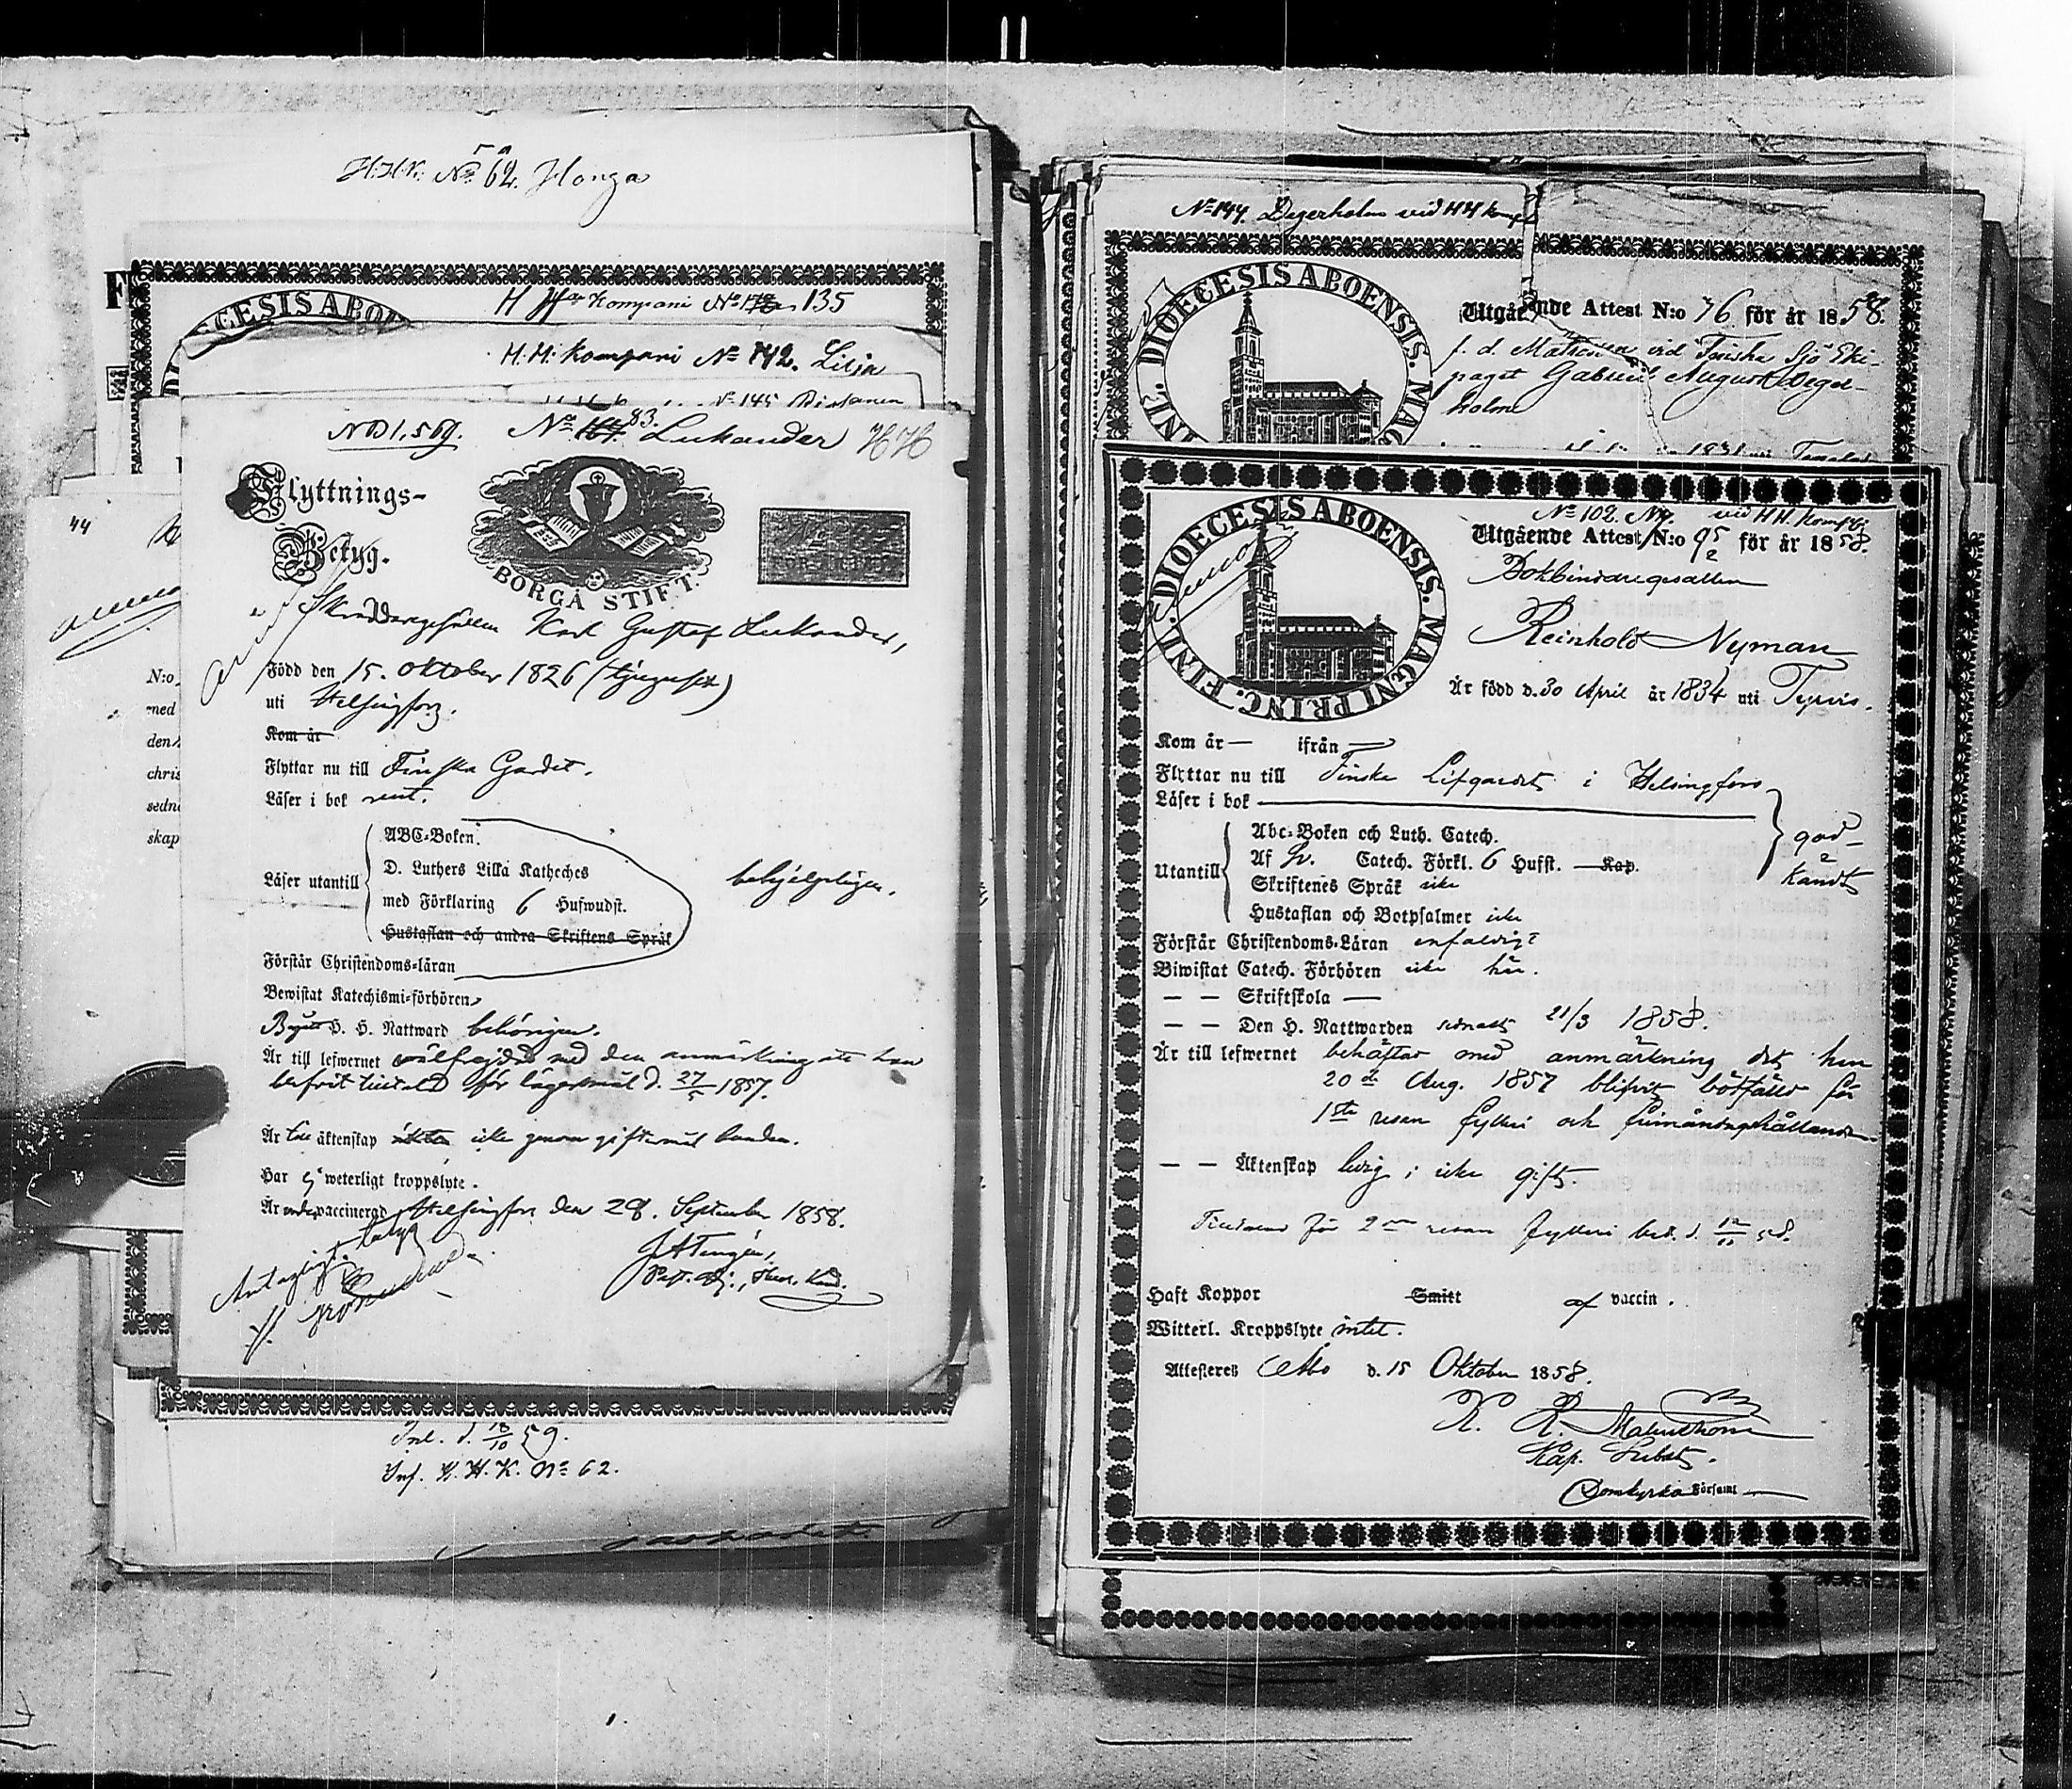 H.H.K. No 62. Honga
H H Kompani No 135
H.H. Kompani No 142. Lilja
No 145
DIOECESIS ABO
NB 1,569. No 167. 83. Lukander HH
Flyttnings-
Betyg.
BORGÅ STIFT.
Skräddaregesällen Karl Gustaf Lukander,
Född den 15. Oktober 1826
uti Helsingfors.
Kom år
Flyttar nu till Finska Gardet.
Läser i bok rent.
ABC-Boken.
D. Luthers Lilla Katheches
Läser utantill
med Förklaring 6 Hufwudst.
behjelpligen.
Hustaflan och andra Skriftens Språk
Förstår Christendoms-läran
Bewistat Katechismi-förhören
Begått H. H. Nattward behörigen.
Är till lefwernet wälfrejdad med den anmärkning att han
blifvit tilltalad för lägersmål d. 27/5 1857.
Är till äktenskap icke genom giftermål bunden.
Har ej weterligt kroppslyte.
Är vaccinerad Helsingfors den 28. September 1858.
44
N:o
med
den
chris
sedn
skap
Inl. d. 18/10 59.
Inf. H. H. K. No 62.
No 144. Degerholm vid HH komp
DIOECESIS ABOENSIS. MAG
Utgående Attest N:o 76 för år 1858.
f. d. Matrosen vid Finska Sjö Eki-
paget Gabriel August Deger-
holm
No 102. vid HH. Komp.
DIOECESIS ABOENSIS. MAGNI PRINC. FINL.
Utgående Attest N:o 95/2 för år 1858.
Bokbindaregesällen
Reinhold Nyman
Är född d. 30 April år 1834 uti Tyrvis.
Kom år — ifrån —
Flyttar nu till Finska Lifgardet i Helsingfors
Läser i bok
Abc-Boken och Luth. Catech.
god-
Utantill
Af Sv. Catech. Förkl. 6 Hufst. — Kap.
kändt
Skriftenes Språk icke
Hustaflan och Botpsalmer icke
Förstår Christendoms-Läran enfaldigt
Biwistat Catech. Förhören icke här.
— — Skriftskola —
— — Den H. Nattwarden sednast 21/3 1858.
Är till lefwernet behäftad med anmärkning det han
20de Aug. 1857 blifvit bötfälld för
1sta resan fylleri och frimåndagshållande.
— — Äktenskap ledig; icke gift.
för 2dra resan fylleri
Haft Koppor Smitt af vaccin.
Witterl. Kroppslyte intet.
Attesterer Åbo d. 15 Oktober 1858.
K. R. Malmström
Kap. Subst.
Domkyrko Församl